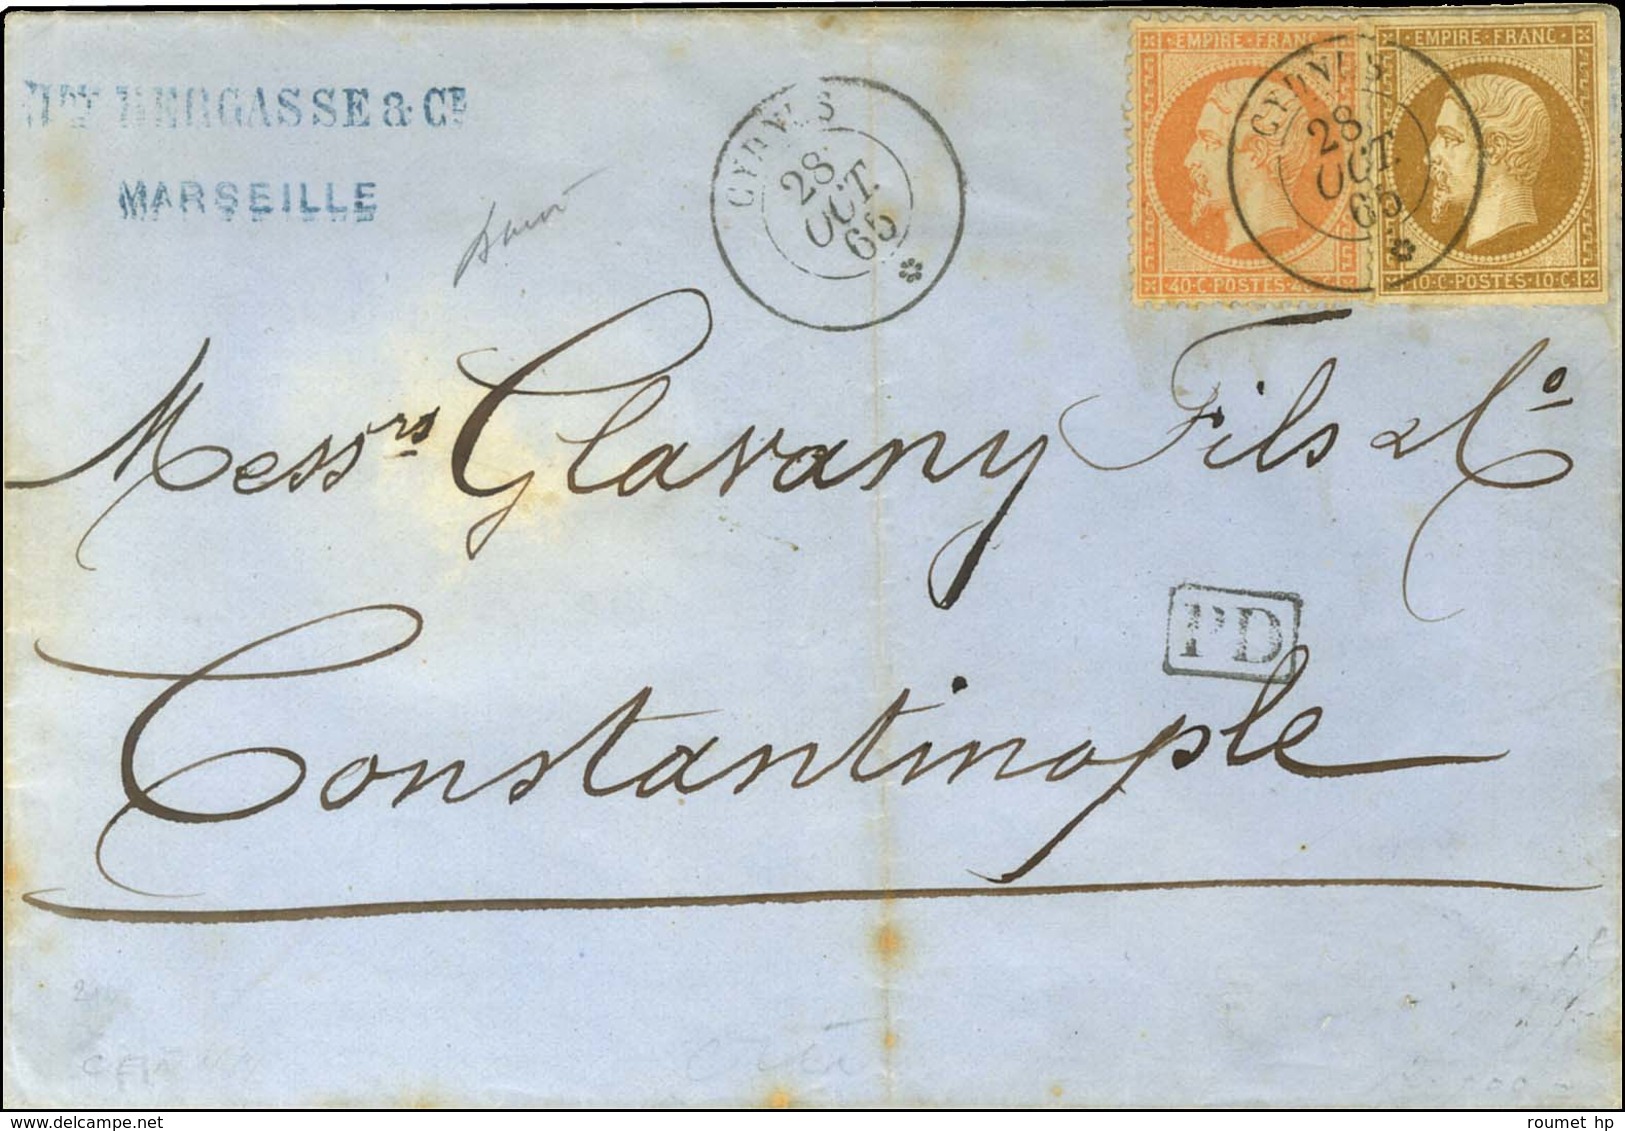 BERGASSE & CIE
MARSEILLE
CYDNUS
28
OCT.
65
EMPIRE · FRANC
40·C·POSTES·4
CYDNUS
28
OCT.
65
EMPIRE · FRANC ·
10·C·POSTES·10·C·
Messrs Glavany Fils & Co
PD
Constantinople
roumet hp